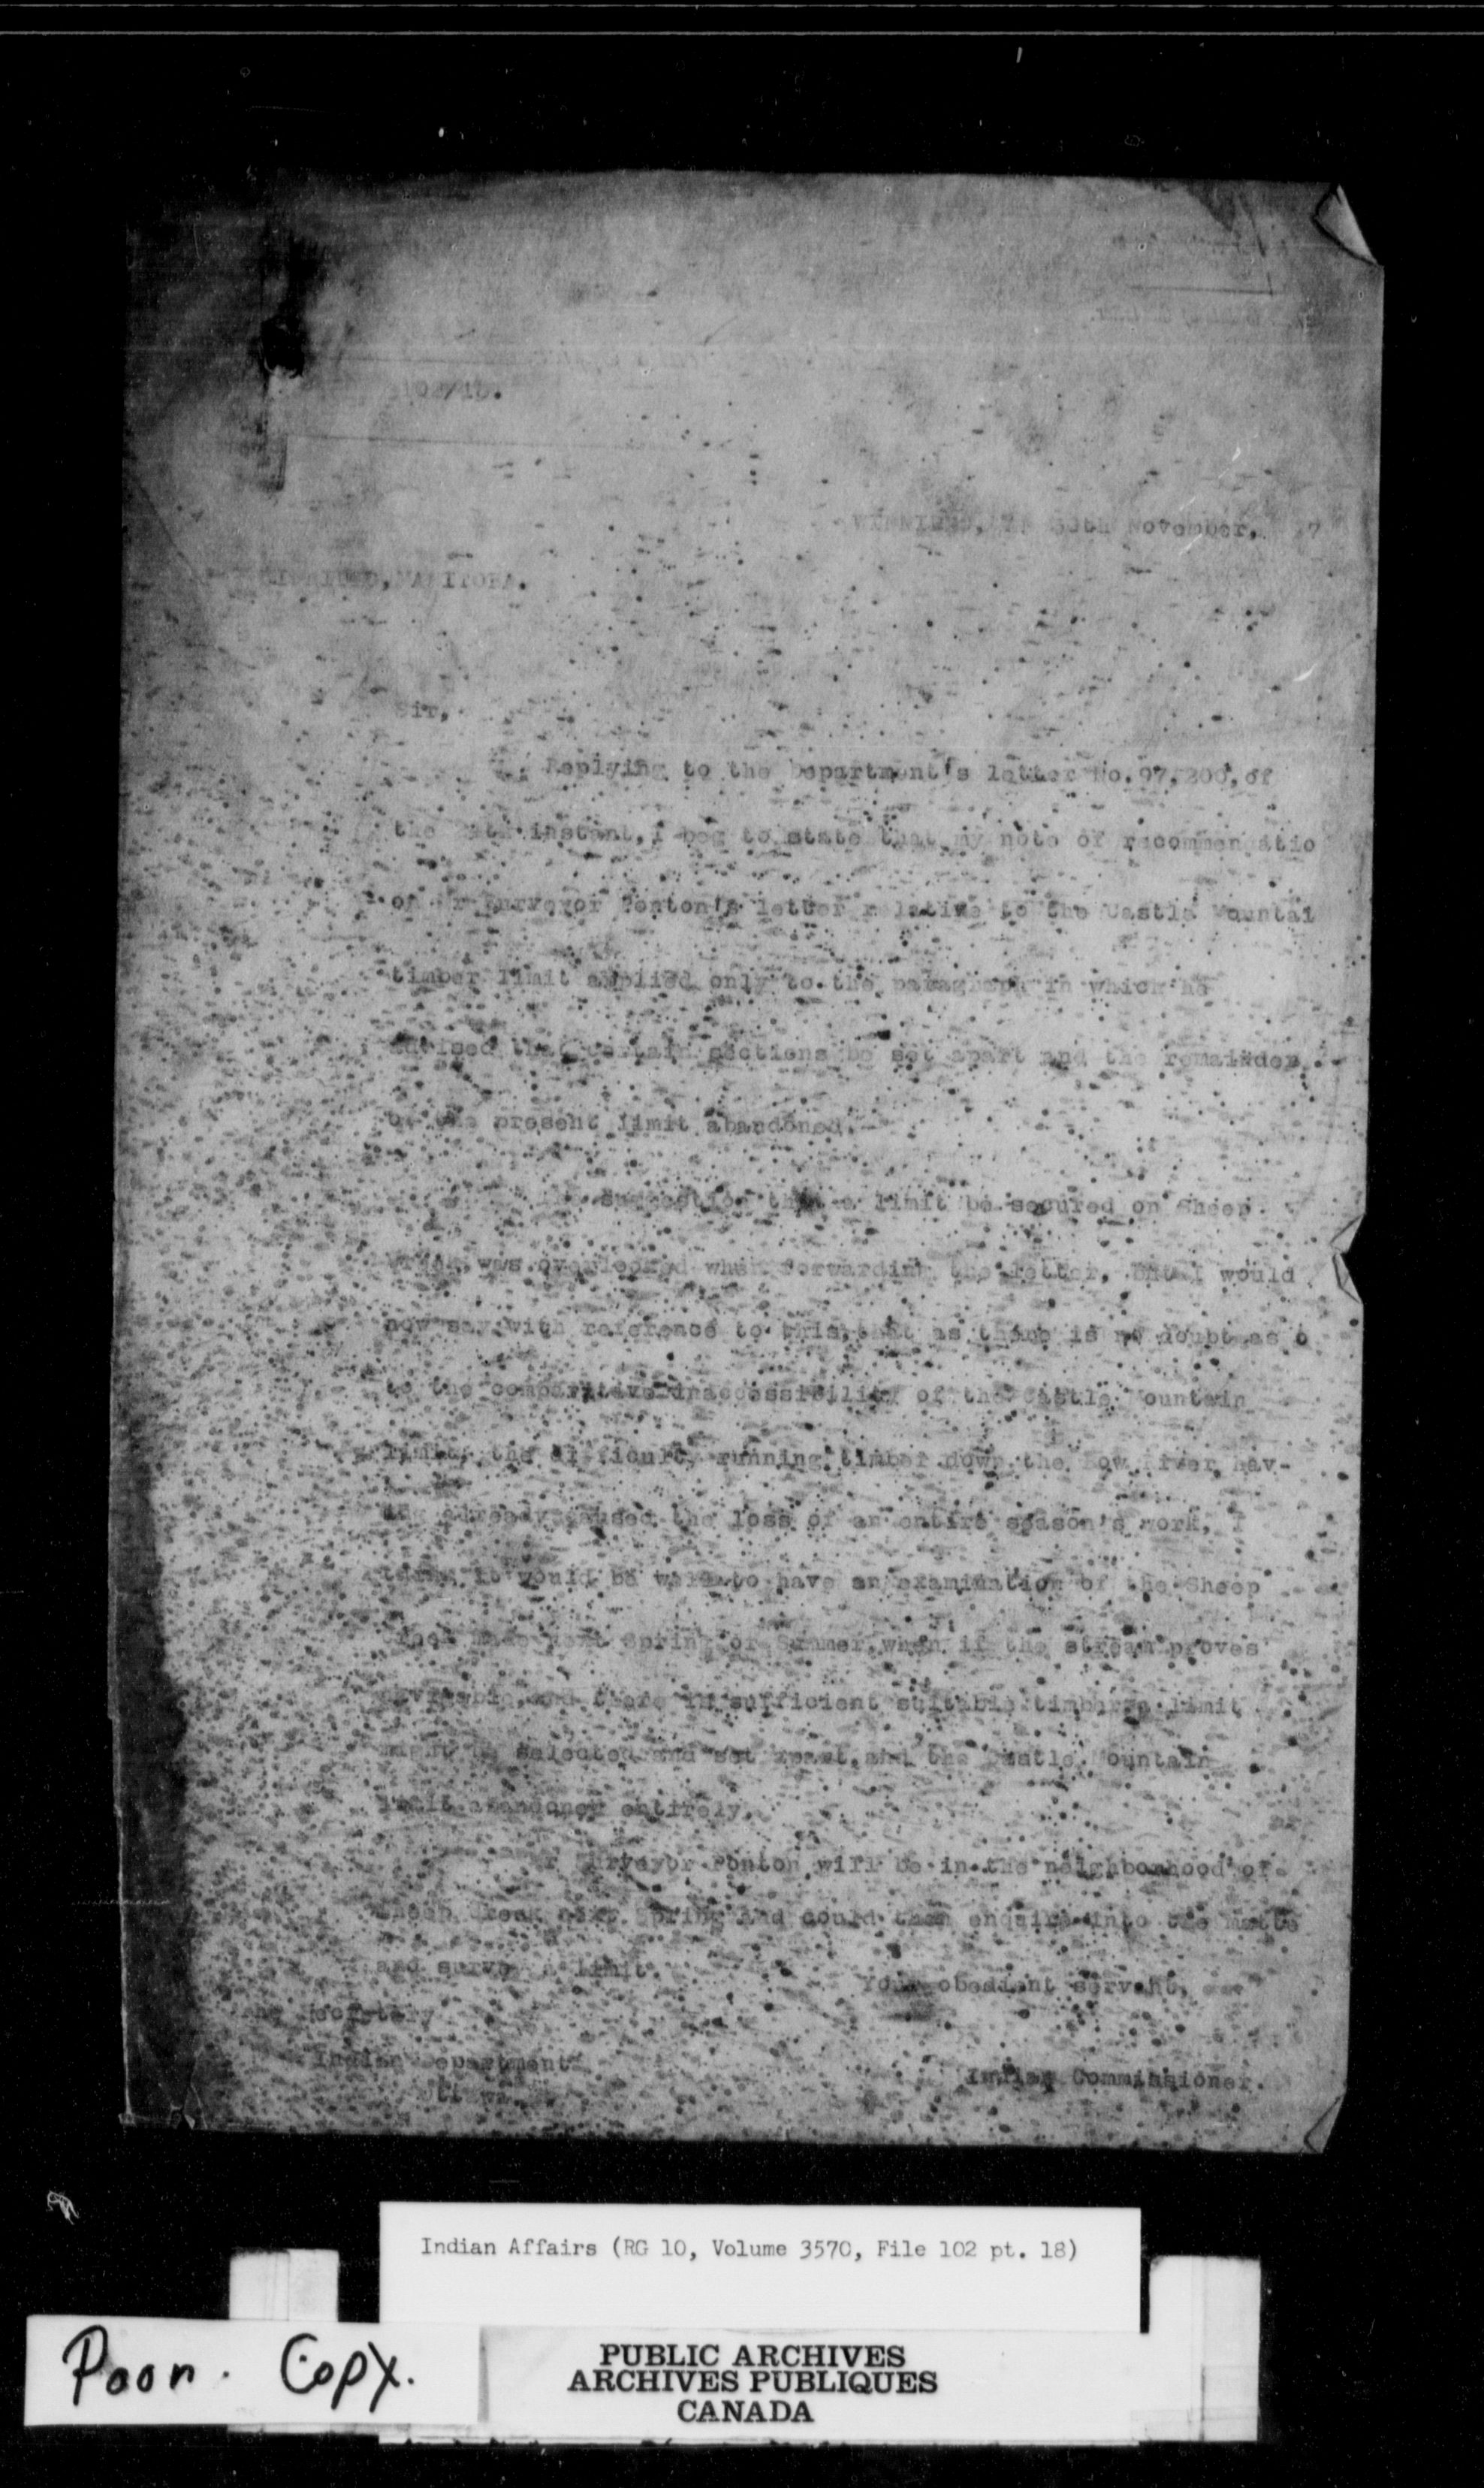 102/18.
WINNIPEG, 30th November, 7
WINNIPEG, MANITOBA.
Sir,
Replying to the Department's letter No. 97,200, of
the instant, I beg to state that my note of recommendatio
on Mr Surveyor Ponton's letter relative to the Castle Mountai
timber limit applied only to the paragraph in which he
advised that certain sections be set apart and the remainder
of the present limit abandoned.
The suggestion that a limit be secured on Sheep
Creek was overlooked when forwarding the letter, but I would
now say with reference to this, that as there is no doubt as o
to the comparative inaccessibility of the Castle Mountain
limit, the difficulty running timber down the Bow River hav-
ing already caused the loss of an entire season's work, I
think it would be well to have an examination of the Sheep
Creek made next Spring or Summer, when if the stream proves
and there is sufficient suitable timber, a limit
might be selected and set apart, and the Castle Mountain
limit abandoned entirely.
Mr Surveyor Ponton will be in the neighborhood of
Sheep Creek next Spring and could then enquire into the matte
and survey a limit.
Your obedient servant,
The Secretary
Indian Department
Ottawa.
Indian Commissioner.
Indian Affairs (RG 10, Volume 3570, File 102 pt. 18)
Poor. Copy.
PUBLIC ARCHIVES
ARCHIVES PUBLIQUES
CANADA